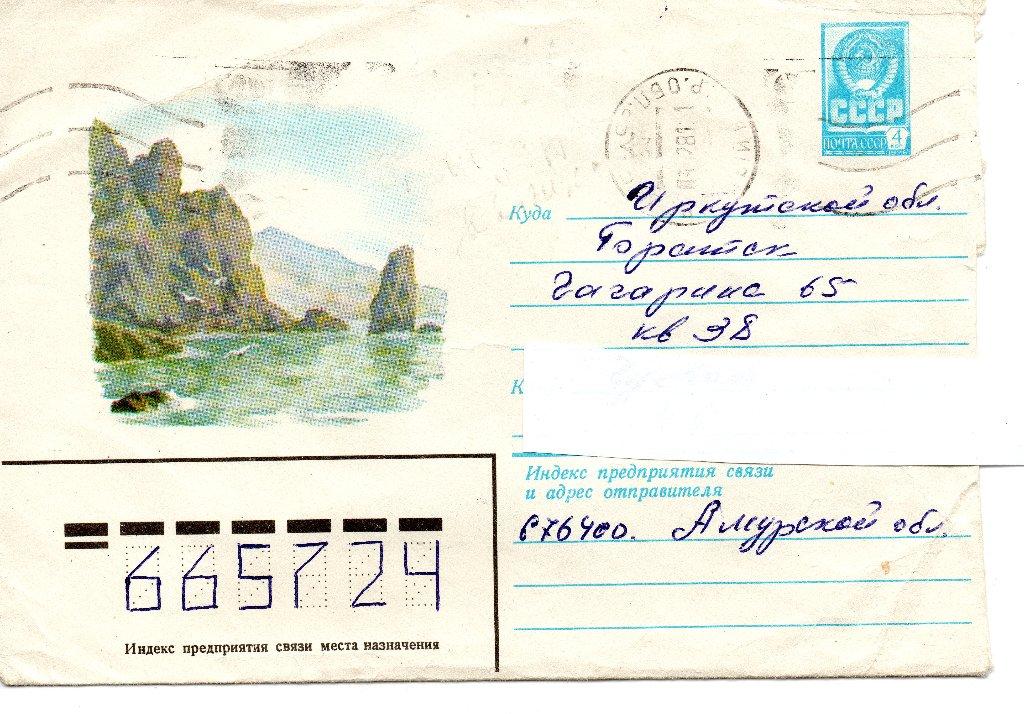 СССР
ПОЧТА СССР 4
Куда Иркутской обл.
Братск
Гагарина 65
кв 38
К
Индекс предприятия связи
и адрес отправителя
676400. Амурской обл.
665724
Индекс предприятия связи места назначения